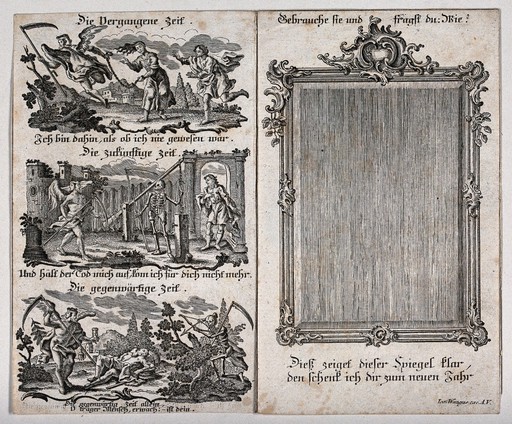 Die Vergangene Zeit.
Ich bin dahin, als ob ich nie gewesen war.
Die zukünftige Zeit.
Und hält der Tod mich auf, kom ich für dich nicht mehr.
Die gegenwärtige Zeit.
Die gegenwärtig Zeit allein,
O träger Mensch, erwach: ist dein.
Gebrauche sie und fragst du: Wie?
Dieß zeiget dieser Spiegel klar,
den schenk ich dir zum neuen Jahr
Wangner sc. A.V.